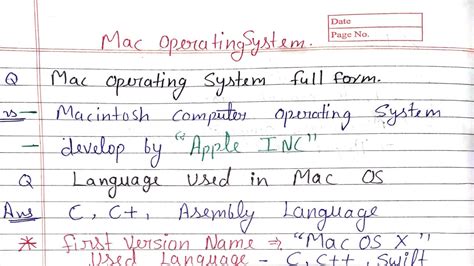 Date
Page No.
Mac OperatingSystem.
Q Mac operating System full form.
ns - Macintosh computer operating System
- develop by "Apple INC"
Q Language Used in Mac OS
Ans C, C++, Asembly Language
* first Version Name ⇒ "Mac OS X"
Used Language - C, C++, Swift